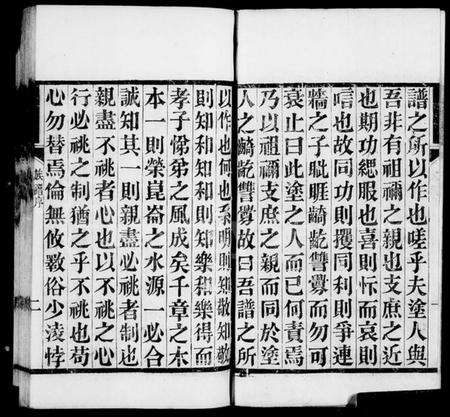 譜之所以作也嗟乎夫塗人與
吾非有祖禰之親也支庶之近
也期功緦服也喜則忻而哀則
唁也故同功則攫同利則爭連
牆之子眦睚齮齕讐釁而勿可
衰止曰此塗之人而已何責焉
乃以祖禰支庶之親而同於塗
人之齮齕讐釁故曰吾譜之所
以作也何也系明則知敬知敬
則知和知和則知樂和樂得而
孝子悌弟之風成矣千章之木
本一則榮崑崙之水源一必合
誠知其一則親盡必祧者制也
親盡不祧者心也以不祧之心
行必祧之制猶之乎不祧也苟
心勿替焉倫無攸斁俗少淩悖
二